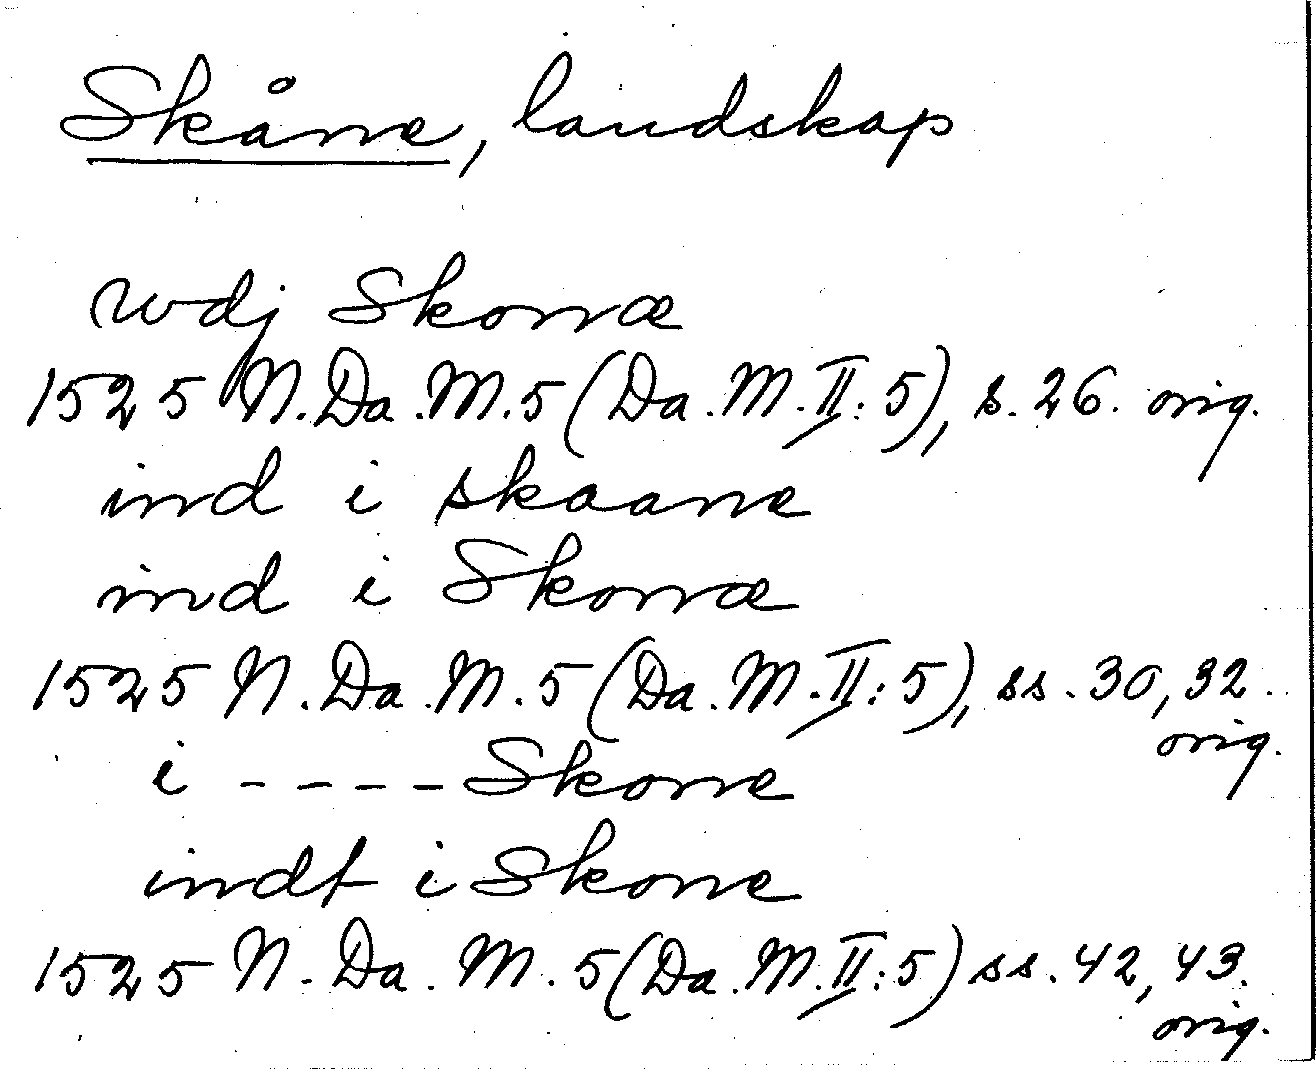 Skåne, landskap
wdj Skonæ
1525 N. Da. M. 5 (Da. M. II: 5), s. 26. orig.
ind i skaane
ind i Skonæ
1525 N. Da. M. 5 (Da. M. II: 5), ss. 30, 32.
orig.
i - - - - Skone
indt i Skone
1525 N. Da. M. 5 (Da. M. II: 5) ss. 42, 43.
orig.